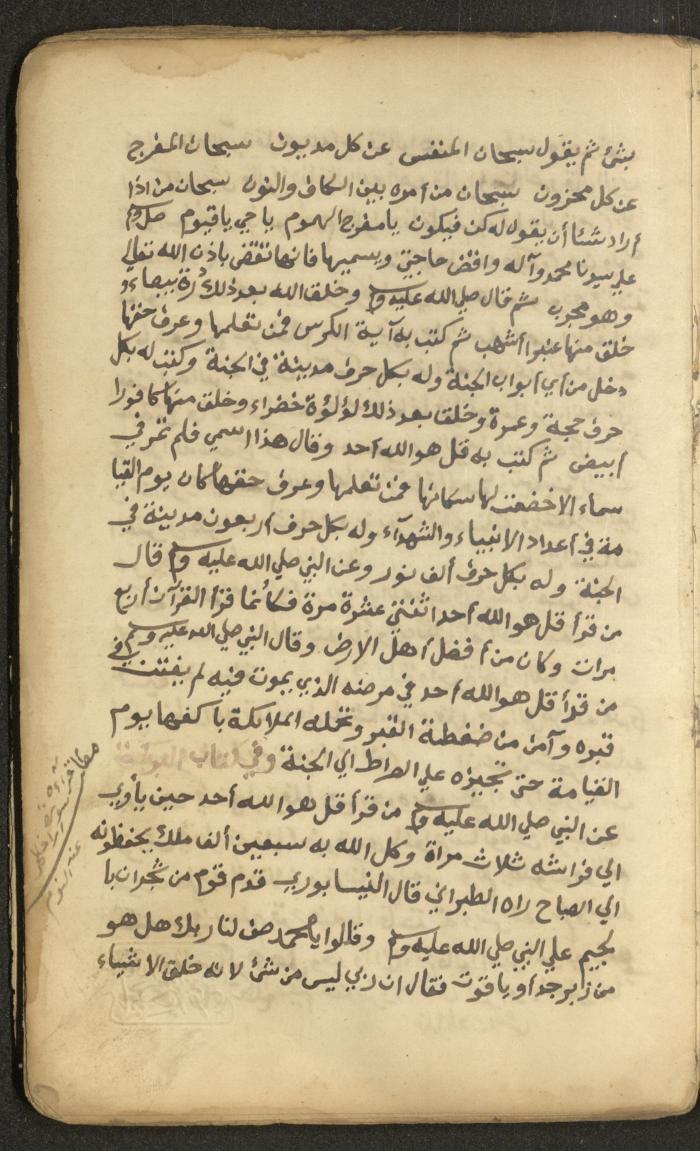 بشئ ثم يقول سبحان المنفس عن كل مديون سبحان المفرج
عن كل محزون سبحان من أمره بين الكاف والنون سبحان من اذا
أراد شئا أن يقول له كن فيكون يا مفرج الهموم يا حي يا قيوم صل وسلم
علي سيدنا محمد وآله واقض حاجتي ويسميها فانها تقضي باذن الله تعالي
وهو مجرب ثم قال صلي الله عليه وسلم وخلق الله بعد ذلك درة بيضاء و
خلق منها عنبرا أشهب ثم كتب به آية الكرسي فمن تعلمها وعرف حقها
دخل من أي أبواب الجنة وله بكل حرف مدينة في الجنة وكتب له بكل
حرف حجة وعمرة وخلق بعد ذلك لؤلؤة خضراء وخلق منها كافورا
أبيض ثم كتب به قل هو الله أحد وقال هذا اسمي فلم تمر في
سماء الا خضعت لها سكانها فمن تعلمها وعرف حقها كان يوم القيا
مة في أعداد الانبياء والشهدآء وله بكل حرف أربعون مدينة في
الجنة وله بكل حرف ألف نور وعن النبي صلي الله عليه وسلم قال
من قرأ قل هو الله أحد اثنتي عشرة مرة فكأنما قرأ القرآن أربع
مرات وكان من أفضل أهل الارض وقال النبي صلي الله عليه وسلم
من قرأ قل هو الله أحد في مرضه الذي يموت فيه لم يفتتن في
قبره وآمن من ضغطة القبر وتحمله الملائكة باكفها يوم
القيامة حتى تجيزه علي الصراط الي الجنة وفي كتاب
عن النبي صلي الله عليه وسلم من قرأ قل هو الله أحد حين يأوي
الي فراشه ثلاث مراة وكل الله به سبعين ألف ملك يحفظونه
الي الصباح راه الطبراني قال النيسابوري قدم قوم من نجران با
لجيم علي النبي صلي الله عليه وسلم وقالوا يا محمد صف لنا ربك هل هو
من زبرجد أو ياقوت فقال ان ربي ليس من شئ لانه خلق الاشياء